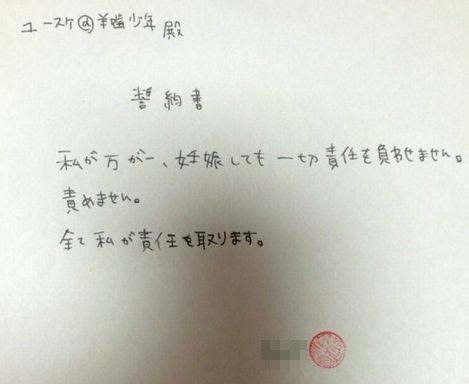 ユースケ@羊齧少年 殿
誓約書
私が万が一、妊娠しても一切責任を負わせません。
責めません。
全て私が責任を取ります。